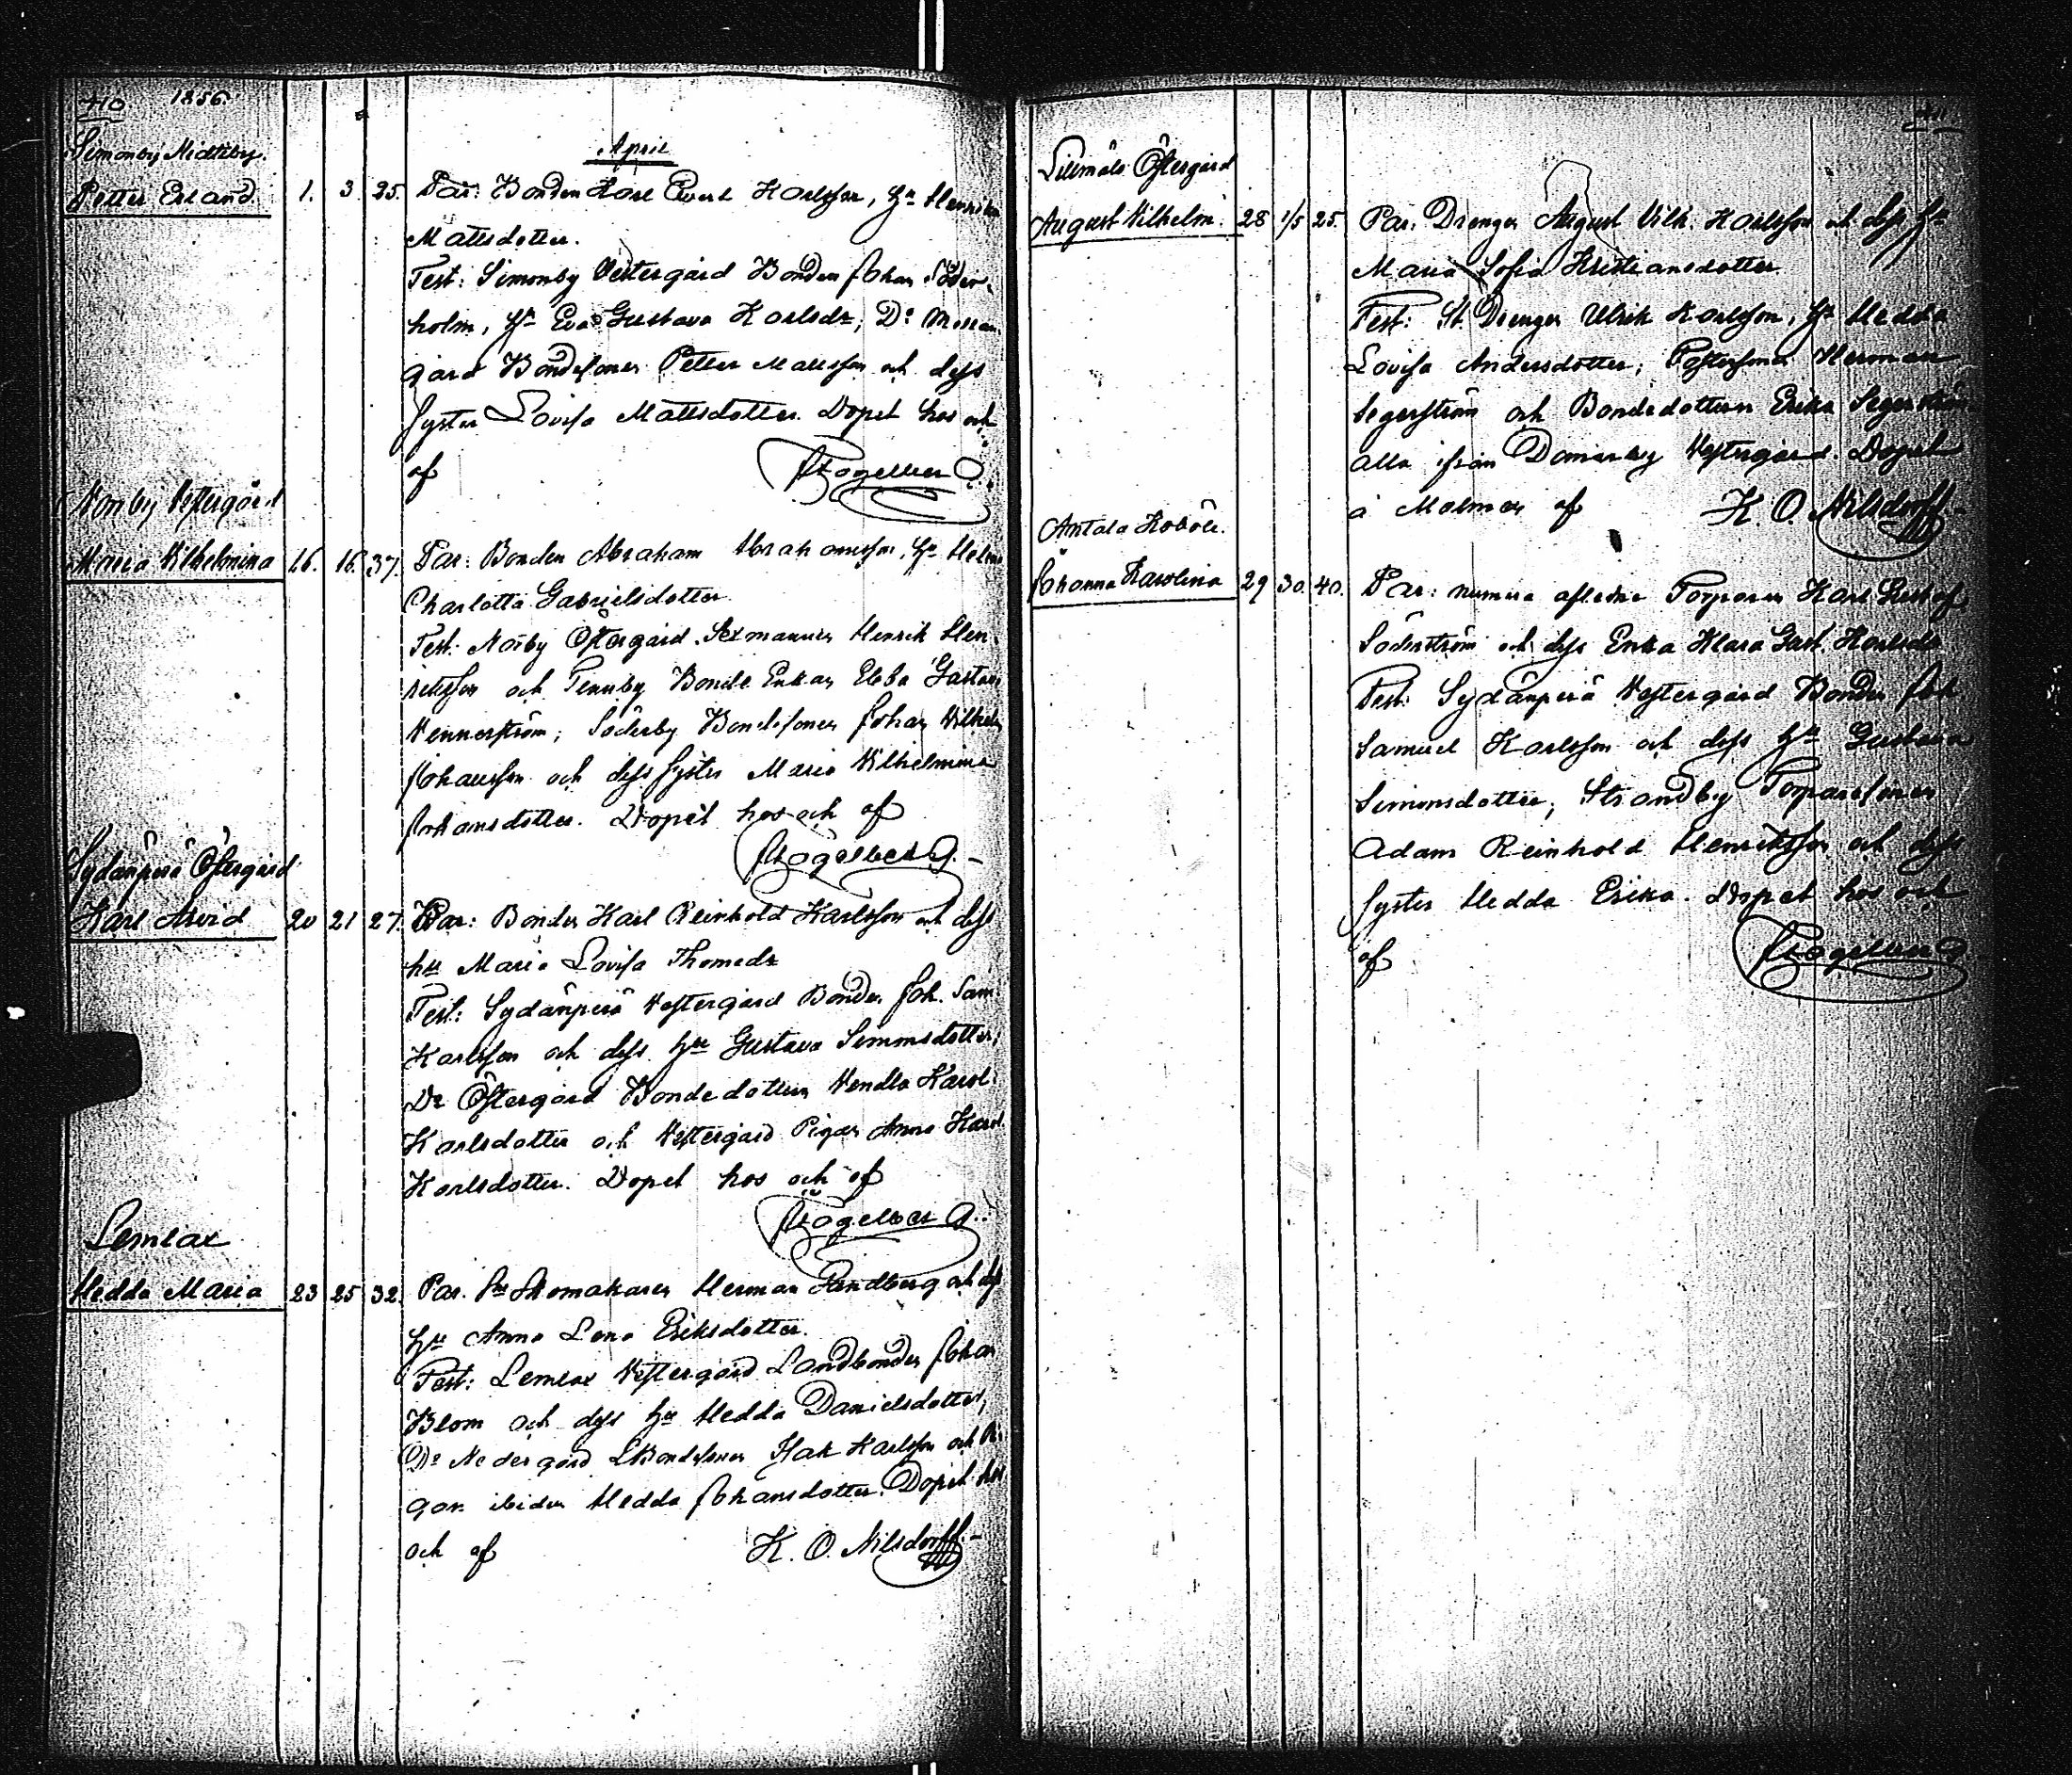 410. 1856.
April
Simonby Midtteby.
Petter Erland. 1. 3. 25. Par: Bonden Karl Evert Karlsson, Hu Henrika
Mattsdotter.
Test: Simonby Vestergård Bonden Johan Söder-
holm, Hu Eva Gustava Karlsdr; Do
gård Bondesonen Petter Mattsson och dess
syster Lovisa Mattsdotter. Döpet hos och
af
Norrby Vestergård
Maria Vilhelmina 16. 16. 37. Par: Bonden Abraham Abrahamsson, Hu Helena
Charlotta Gabrielsdotter
Test: Norrby Östergård Sexmannen Henrik Hen-
riksson och Tennby Bonde Enkan Ebba Gustava
Vennerström; Söderby Bondesonen Johan Vilhelm
Johansson och dess syster Maria Vilhelmina
Johansdotter. Döpet hos och af
Sydänperä Östergård
Karl Arvid 20 21 27. Par: Bonden Karl Reinhold Karlsson och dess
hu Maria Lovisa Thomedr
Test: Sydänperä Vestergård Bonden Joh. Sam.
Karlsson och dess hu Gustava Simonsdotter;
Do Östergård Bondedottern Vendla Karol.
Karlsdotter och Vestergård Pigan Anna Karol.
Karlsdotter. Döpet hos och af
Lemlax
Hedda Maria 23 25 32. Par. Skomakaren Herman Sandberg och dess
hu Anna Lena Eriksdotter.
Test: Lemlax Vestergård Landbonden Johan
Blom och dess hu Hedda Danielsdotter;
Do Nedergård LBondesonen Isak Karlsson och Pi-
gan ibidem Hedda Johansdotter. Döpet hos
och af K. O. Nilsdorff.
411.
Lillmälö Östergård
August Vilhelm. 28 1/5 25. Par: Drengen August Vilh. Karlsson och dess hu
Maria Sofia Kristiansdotter.
Test: St. Drengen Ulrik Karlsson, hu Hedda
Lovisa Andersdotter; Herman
Segerström och Bondedottern Erika Segerström
alla ifrån Domarby Vestergård. Döpet
å Malmen af K. O. Nilsdorff.
Antala
Johanna Karolina 29 30. 40. Par: numera aflidne Torparen Karl Gustaf
Söderström och dess Enka Klara Gust. Karlsdr
Test: Sydänperä Vestergård Bonden Joh.
Samuel Karlsson och dess hu Gustava
Simonsdotter; Strandby Torparesonen
Adam Reinhold Henriksson och dess
syster Hedda Erika. Döpet hos och
af